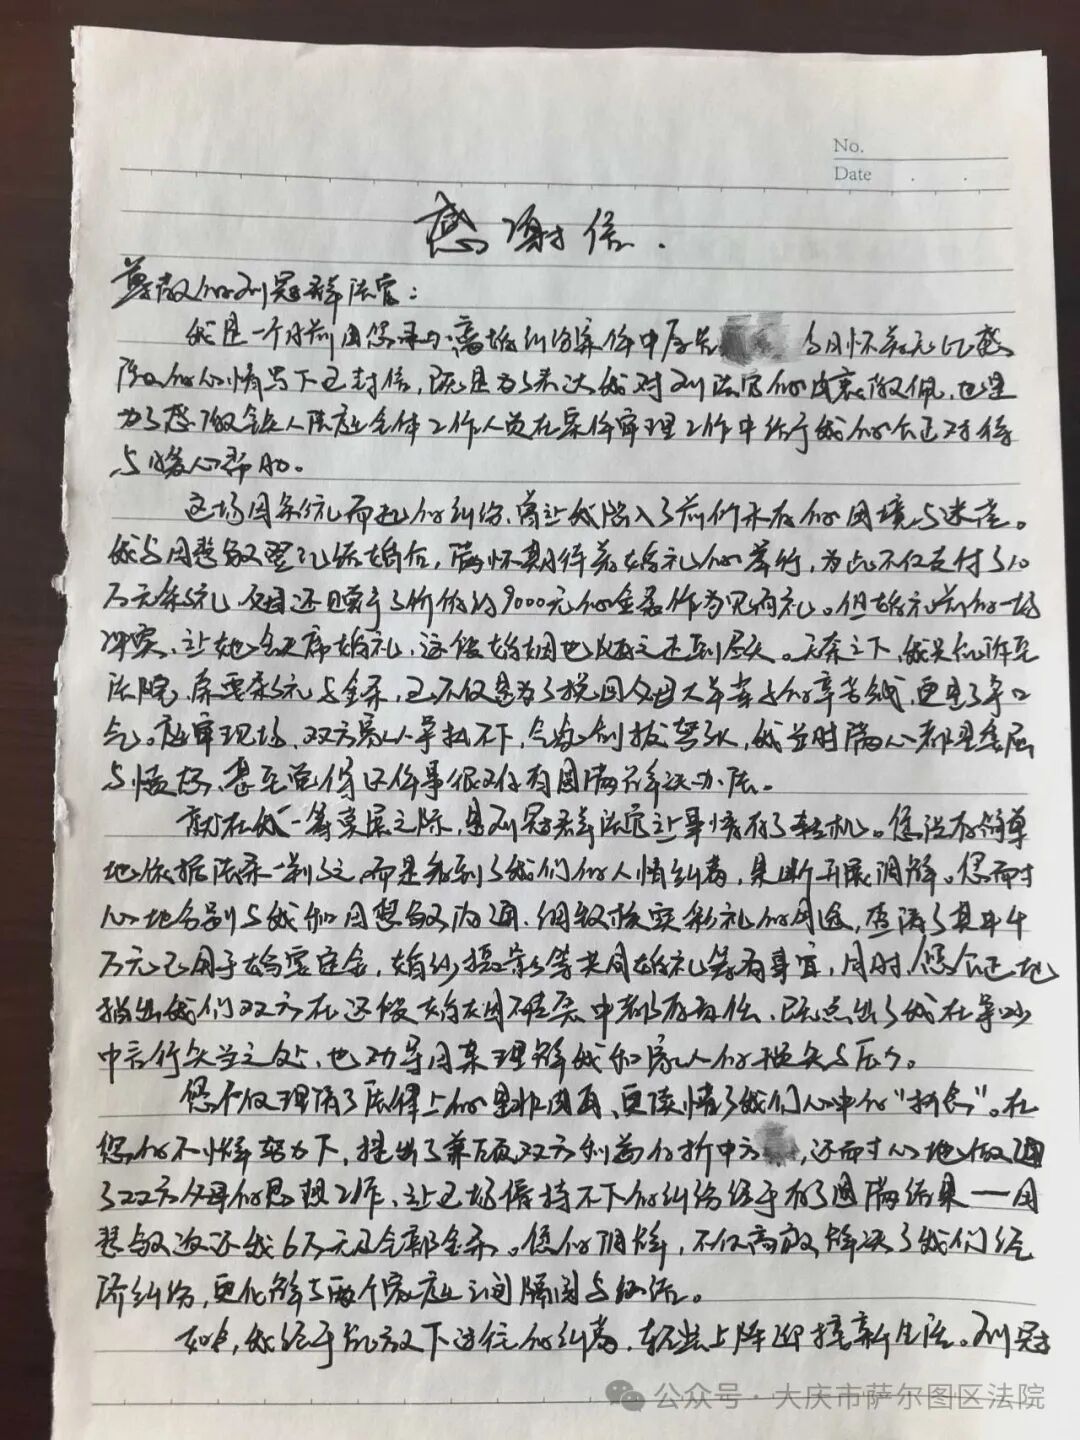 No.
Date
感谢信.
尊敬的刘冠群法官:
我是一个月前因您承办离婚纠纷案件中原告 今日怀着无比感
激的心情写下这封信,既是为了表达我对刘法官的由衷敬佩,也是
为了感激铁人法庭全体工作人员在案件审理工作中给予我的公正对待
与暖心帮助。
这场因彩礼而起的纠纷,曾让我陷入了前所未有的困境与迷茫。
我与周慧敏登记结婚后,满怀期待着婚礼的举行,为此不仅支付了10
万元彩礼,父母还赠予了价值约9000元的金条作为见面礼。但婚礼前的一场
冲突,让她缺席婚礼,这段婚姻也因之走到尽头。无奈之下,我只能诉至
法院,索要彩礼与金条,这不仅是为了挽回父母大半辈子的辛苦钱,更是了争口
气。庭审现场,双方家人争执不下,气氛剑拔弩张,我当时满心都是委屈
与愤怒,甚至觉得这件事很难有圆满解决办法。
就在我一筹莫展之际,是刘冠群法官让事情有了转机。您没有简单
地依据法条一判了之,而是看到了我们的人情纠葛,果断开展调解。您耐
心地分别与我和周慧敏沟通,细致核实彩礼的用途,查清了其中4
万元已用于婚宴定金,婚纱摄影等共同婚礼筹备事宜,同时,您公正地
指出我们双方在这段婚姻破裂中都存有责任,既点出了我在争吵
中言行失当之处,也劝导周某理解我和家人的损失与压力。
您不仅理清了法律上的是非因果,更读懂了我们心中的"拧劲"。在
您的不懈努力下,提出了兼顾双方利益的折中方 ,还耐心地做通
了双方父母的思想工作,让这场僵持不下的纠纷终于有了圆满结果——周
慧敏返还我6万元及全部金条。您的调解,不仅高效解决了我们经
济纠纷,更化解了两个家庭之间隔阂与怨结。
如今,我终于能放下过往的纠葛,轻装上阵迎接新生活。刘冠
公众号·大庆市萨尔图区法院